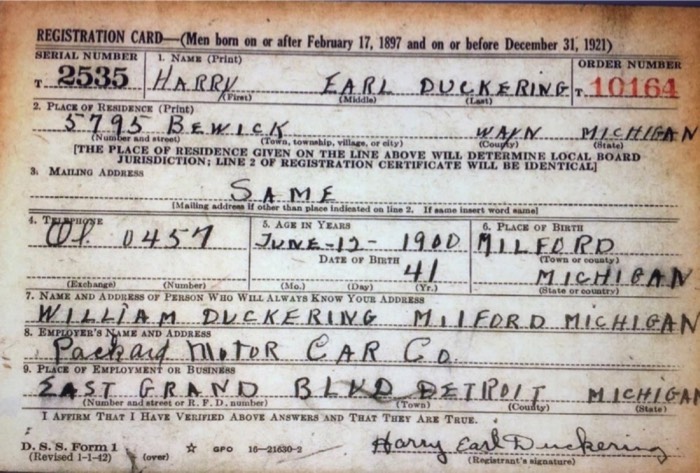 REGISTRATION CARD—(Men born on or after February 17, 1897 and on or before December 31, 1921)
SERIAL NUMBER 1. NAME (Print) ORDER NUMBER
T 2535 HARRY EARL DUCKERING T 10164
(First) (Middle) (Last)
2. PLACE OF RESIDENCE (Print)
5795 BEWICK WAYN MICHIGAN
(Number and street) (Town, township, village, or city) (County) (State)
[THE PLACE OF RESIDENCE GIVEN ON THE LINE ABOVE WILL DETERMINE LOCAL BOARD
JURISDICTION; LINE 2 OF REGISTRATION CERTIFICATE WILL BE IDENTICAL]
3. MAILING ADDRESS
SAME
[Mailing address if other than place indicated on line 2. If same insert word same]
4. TELEPHONE 5. AGE IN YEARS 6. PLACE OF BIRTH
0457 JUNE-12- 1900 MILFORD
DATE OF BIRTH (Town or county)
41 MICHIGAN
(Exchange) (Number) (Mo.) (Day) (Yr.) (State or country)
7. NAME AND ADDRESS OF PERSON WHO WILL ALWAYS KNOW YOUR ADDRESS
WILLIAM DUCKERING MILFORD MICHIGAN
8. EMPLOYER'S NAME AND ADDRESS
Packard MOTOR CAR CO.
9. PLACE OF EMPLOYMENT OR BUSINESS
EAST GRAND BLVD DETROIT MICHIGAN
(Number and street or R. F. D. number) (Town) (County) (State)
I AFFIRM THAT I HAVE VERIFIED ABOVE ANSWERS AND THAT THEY ARE TRUE.
D. S. S. Form 1 ☆ GPO 16—21630-2 Harry Earl Duckering
(Revised 1-1-42) (over) (Registrant's signature)